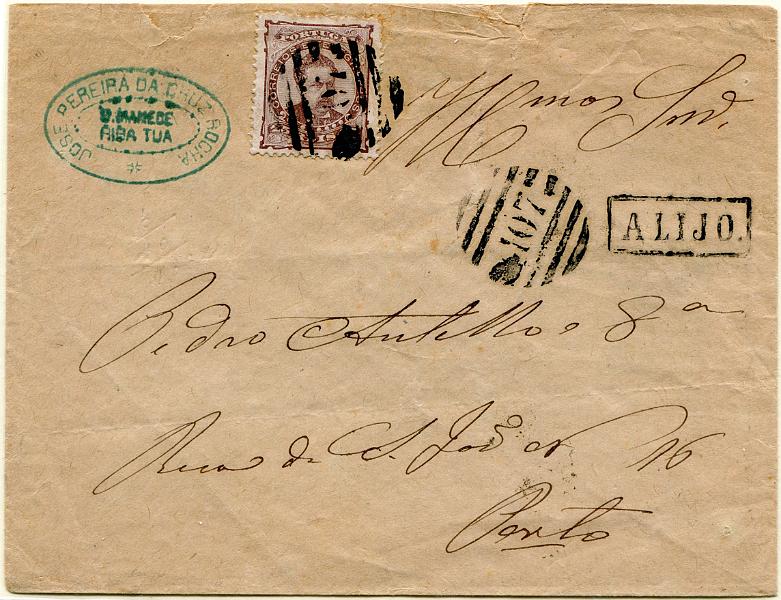 JOSÉ PEREIRA DA CRUZ ROCHA
S. MAMEDE
RIBA TUA
PORTUGAL
CORREIOS
107
Illmos Snrs
107
ALIJO.
Pedro
Rua de S. João Nº 16
Porto